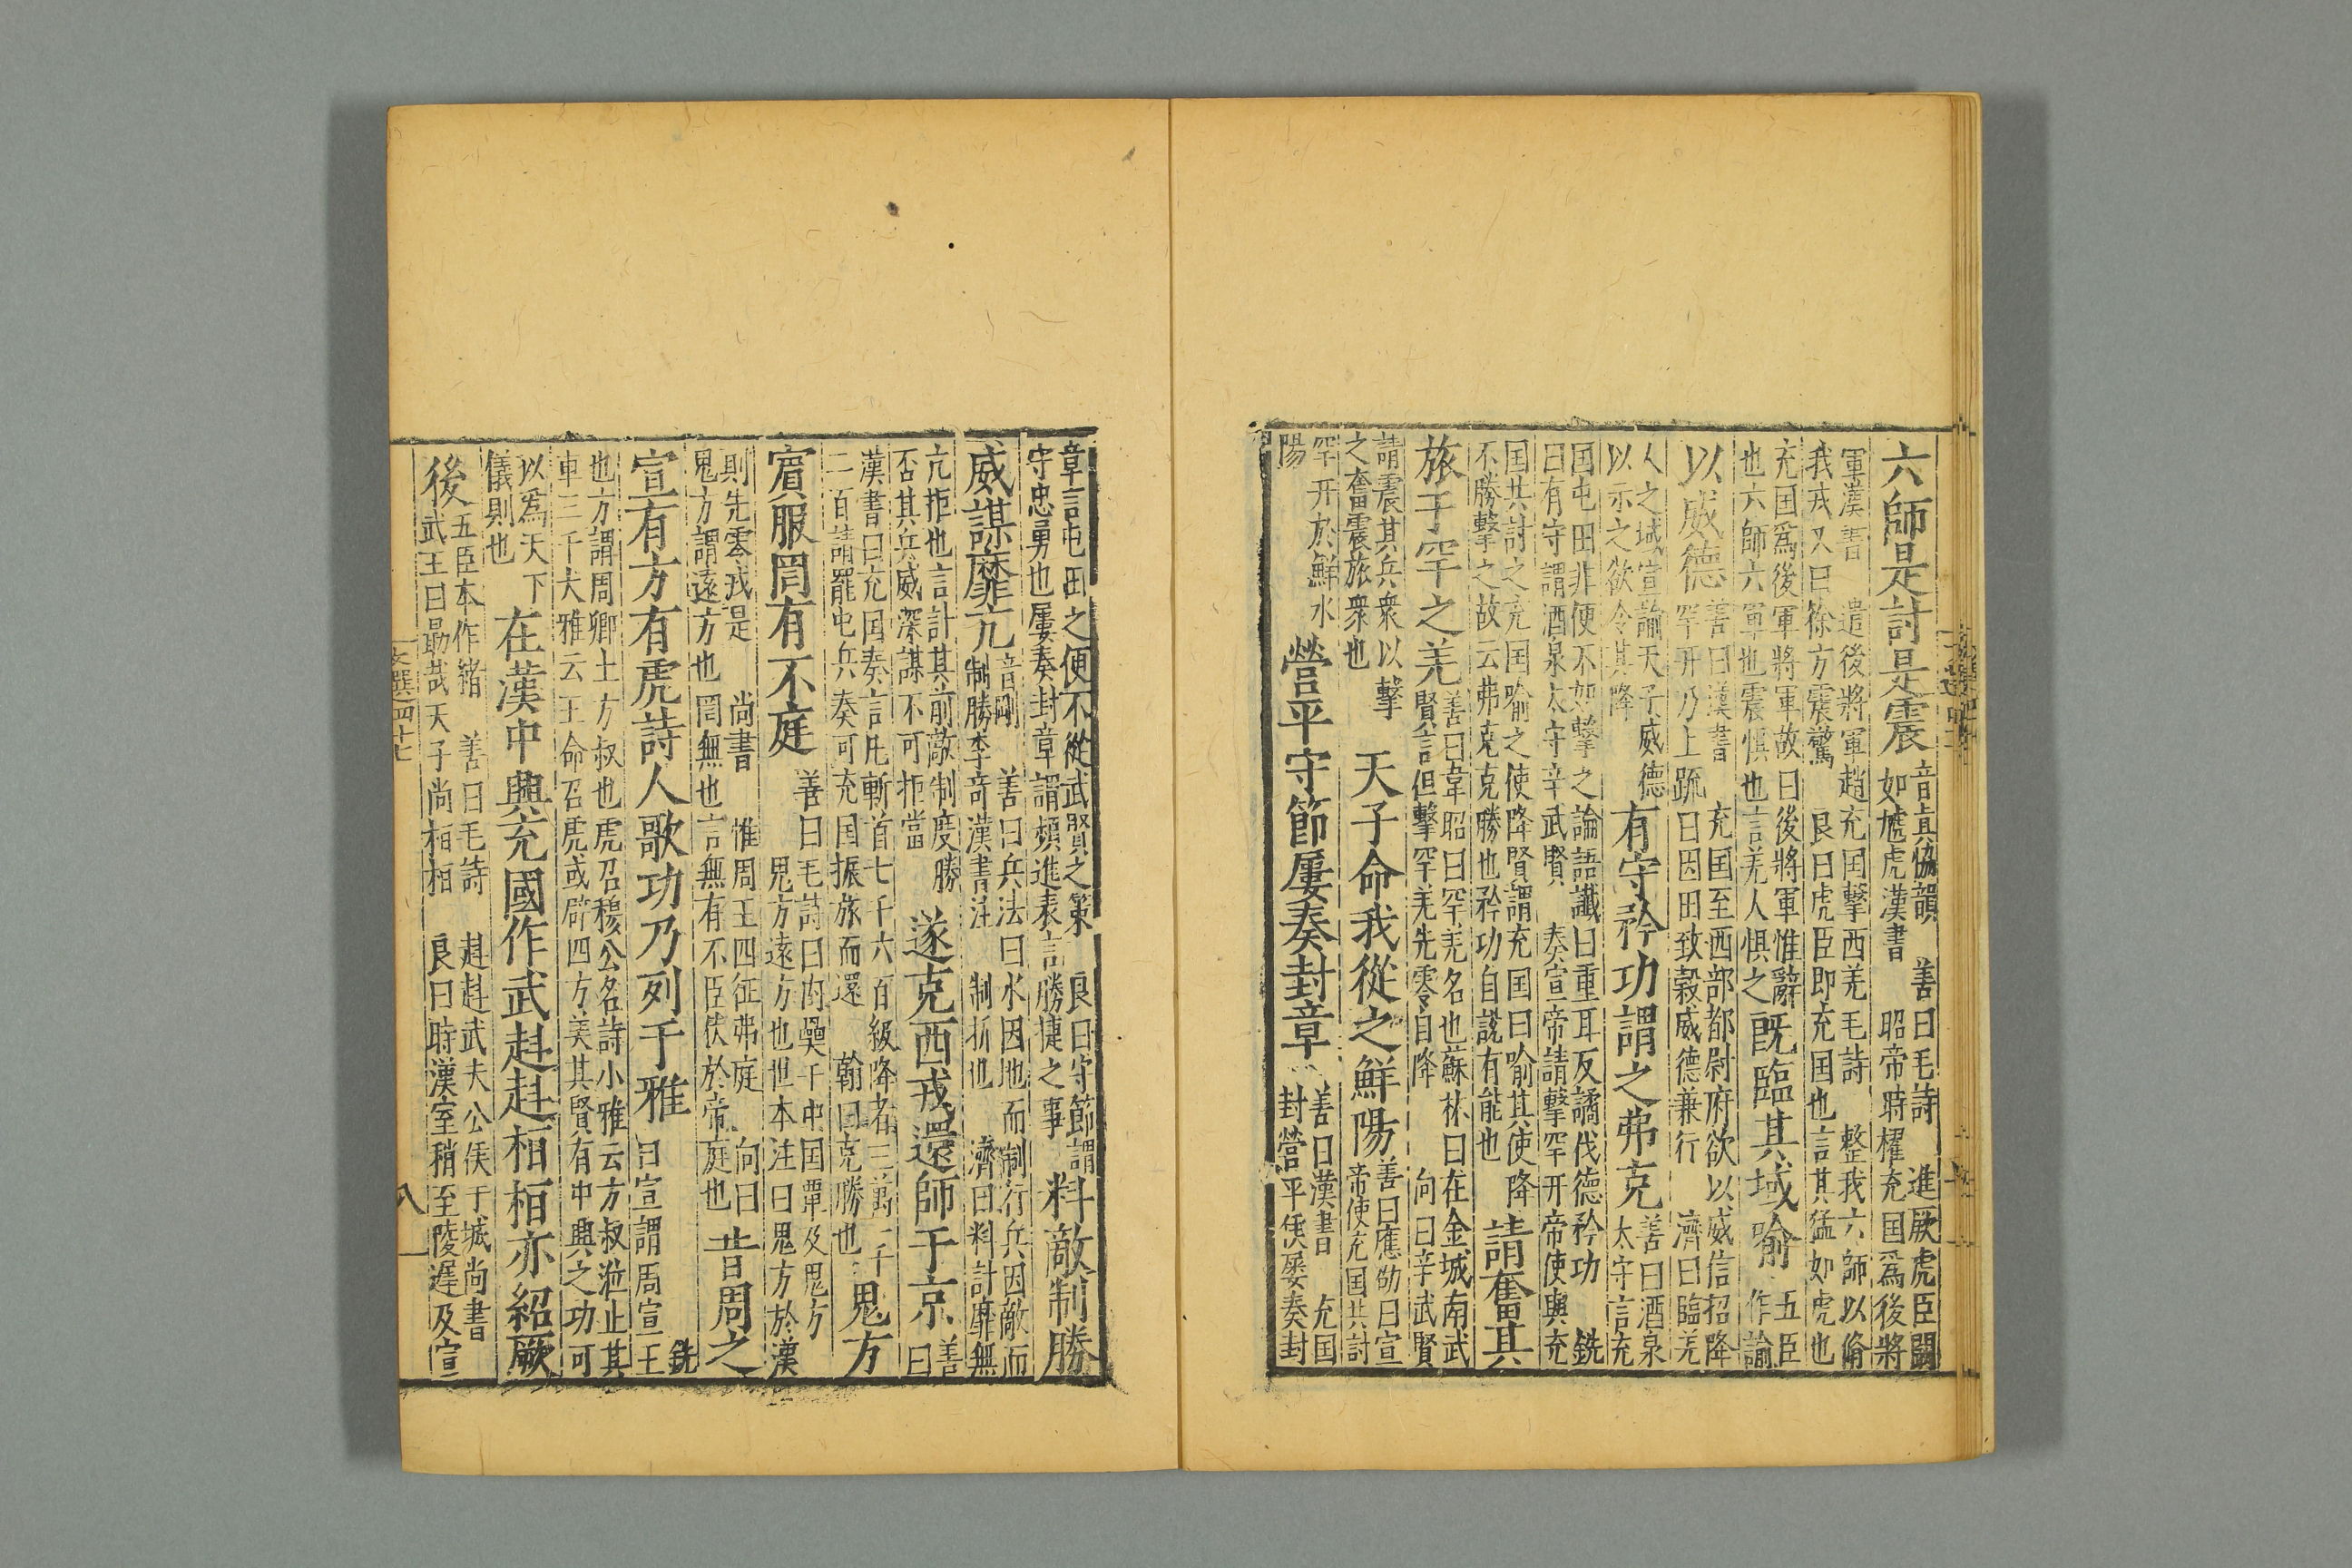 六師是討是震音真協韻善曰毛詩進厥虎臣闞
如虓虎漢書昭帝時擢充囯爲後將
軍漢書遣後將軍趙充囯擊西羌毛詩整我六師以脩
我戎又曰徐方震驚良曰虎臣即充囯也言其猛如虎也
充囯爲後軍將軍故曰後將軍惟辭
也六師六軍也震惧也言羌人惧之
既臨其域喻五臣
作諭
以威德善曰漢書充囯至西部都尉府欲以威信招降
罕幵乃上疏曰因田致穀威德兼行濟曰臨羌
人之域宣諭天子威德
以示之欲令其降
有守矜功謂之弗克善曰酒泉
太守言充
囯屯田非便不如擊之論語讖曰重耳反譎伐德矜功銑
曰有守謂酒泉太守辛武賢奏宣帝請擊罕幵帝使與充
囯共討之充囯喻之使降賢謂充囯曰喻其使降
不勝擊之故云弗克克勝也矜功自說有能也
請奮其
旅于罕之羌善曰韋昭曰罕羌名也蘇林曰在金城南武
賢言但擊罕羌先零自降向曰辛武賢
請震其兵衆以擊
之奮震旅衆也
天子命我從之鮮陽善曰應劭曰宣
帝使充囯共討
罕幵於鮮水
陽
營平守節屢奏封章善曰漢書充囯
封營平侯屢奏封
章言屯田之便不從武賢之策良曰守節謂
守忠勇也屢奏封章謂頻進表言勝捷之事
料敵制勝
威謀靡亢音剛善曰兵法曰水因地而制行兵因敵而
制勝李竒漢書注制折也濟曰料計靡無
亢拒也言計其前敵制度勝
否其兵威深謀不可拒當
遂克西戎還師于京善
曰
漢書曰充囯奏言凡斬首七千六百級降者三萬一千
二百請罷屯兵奏可充囯振旅而還翰曰克勝也
鬼方
賔服罔有不庭善曰毛詩曰内奰于中囯覃及鬼方
鬼方遠方也世本注曰鬼方於漢
則先零戎是尚書惟周王四征弗庭向曰
鬼方謂遠方也罔無也言無有不臣伏於帝庭也
昔周之
宣有方有虎詩人歌功乃列于雅銑
曰宣謂周宣王
也方謂周卿士方叔也虎召穆公名詩小雅云方叔涖止其
車三千大雅云王命召虎或辟四方美其賢有中興之功可
以為天下
儀則也
在漢中興充國作武赳赳桓桓亦紹厥
後五臣本作緒善曰毛詩赳赳武夫公侯于城尚書
武王曰勖哉夫子尚桓桓良曰時漢室稍至陵遲及宣
文選四十七
八